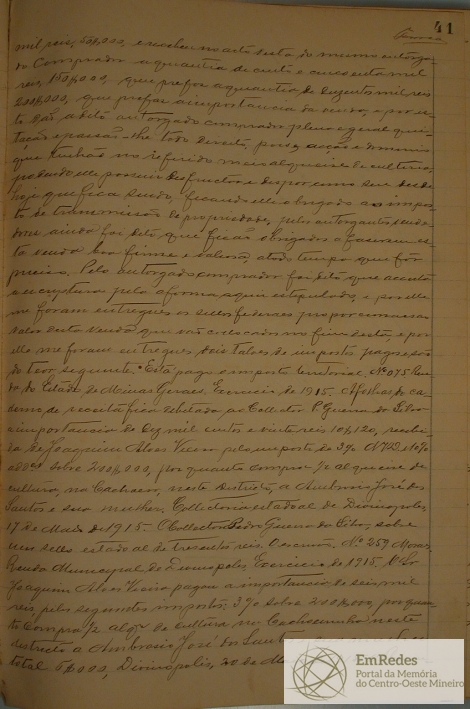 41
mil reis, 50$000, e recebeu no acto desta do mesmo outorga-
do Comprador a quantia de cento e cincoenta mil
reis, 150$000, que prefaz a quantia de duzentos mil reis
200$000, que prefaz a importancia da venda, e por is-
to dão a dito outorgado comprador plena e geral qui-
tação e passão-lhe todo direito, posse, acção e dominio
que tinhão no referido meio alqueire de cultura,
podendo elle possuir desfructar e dispor como seu desde
hoje que fica sendo, ficando elle obrigado ao impos-
to de transmissão de propriedade, pelos outorgantes vende-
dores ainda foi dito que ficão obrigados a fazerem es-
ta venda boa firme e valiosa, a todo tempo que fôr
preciso. Pelo outorgado comprador foi dito que acceita
a escriptura pela forma aqui estipulada, e por elle
me foram entregues os sellos federaes proporcionaes ao
valor desta venda que vão collocados no fim desta, e por
elle me foram entregues dois talões de impostos pagos
do teor seguinte. Está pago o imposto territorial. Nº 975 Ren-
da do Estado de Minas Geraes. Exercicio de 1915. A folhas do ca-
derno de receita fica debitado ao Collector P. Guerra da Silva
a importancia de dez mil cento e vinte reis 10$120, recebi-
da de Joaquim Alves Vieira pelo imposto de
sobre 200$000, por quanto comprou ½ alqueire de
cultura, na Cachoeira, neste districto, a Ambrosio José dos
Santos e sua mulher. Collectoria estadoal de Divinopolis,
17 de Maio de 1915. O Collector Pedro Guerra da Silva, sobre
um sello estadoal de trezentos reis. O escrivão. Nº 259
Renda Municipal de Divinopolis Exercicio de 1915. O Sr.
Joaquim Alves Vieira pagou a importancia de seis mil
reis pelos seguintes impostos; 3% sobre 200$000, por quan-
to comprou ½ alqr de cultura no Cachoeirinha neste
districto a Ambrosio José dos Santos
total 6$000, Divinopolis, 20 de
EmRedes
Portal da Memória
do Centro-Oeste Mineiro